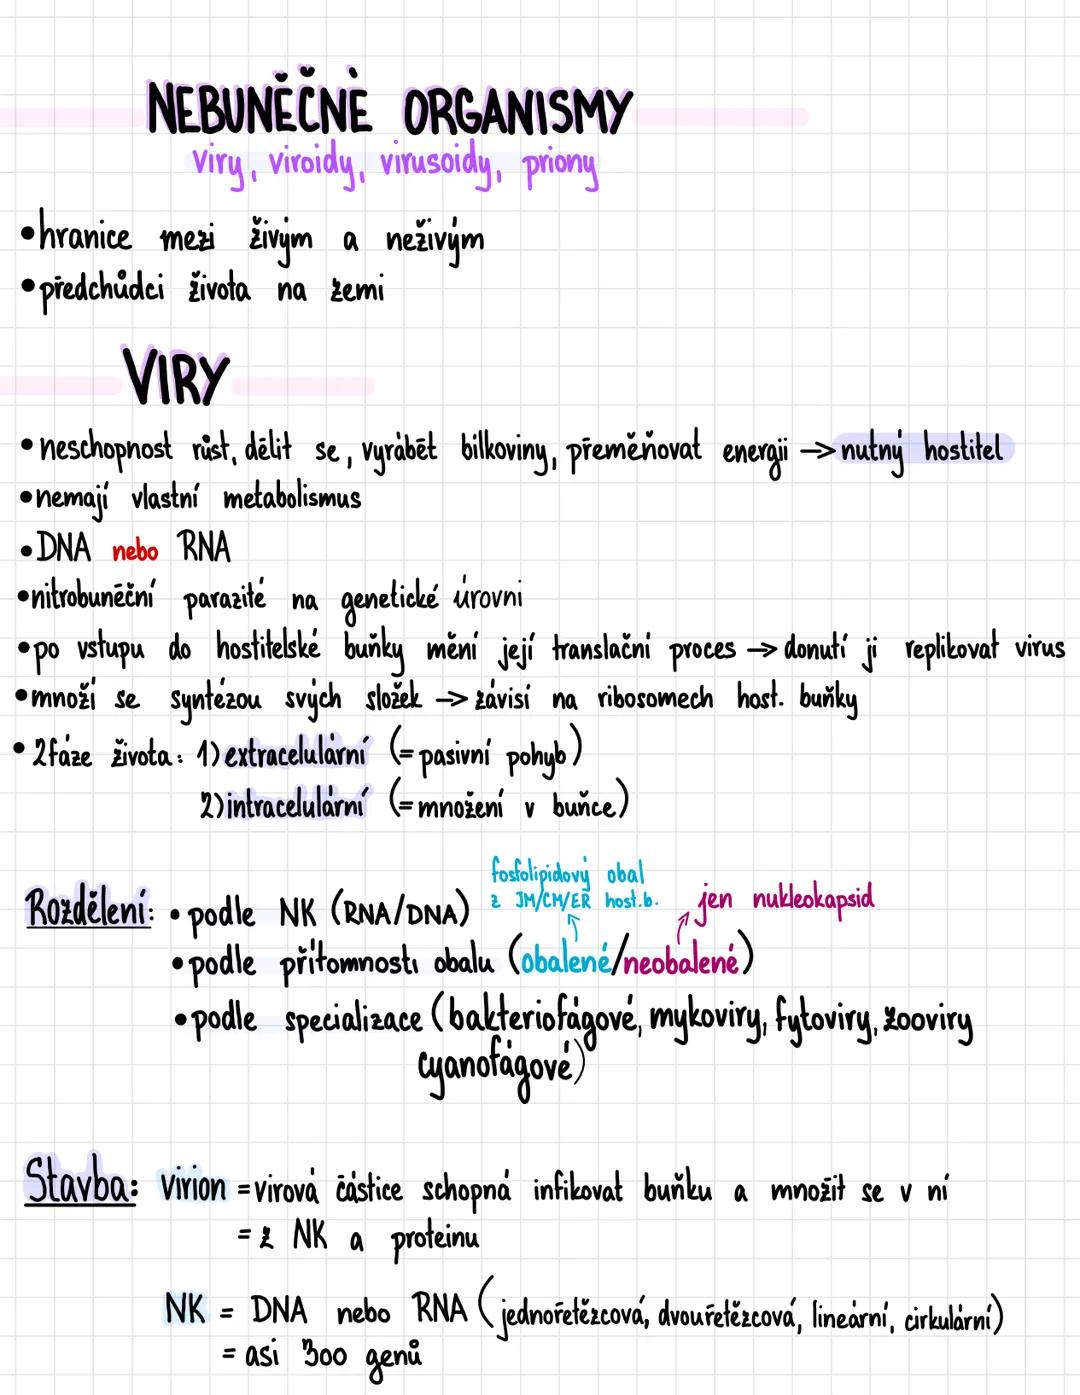 NEBUNĚČNÉ ORGANISMY
viry, viroidy, virusoidy, priony
•hranice mezi živým a neživým
•předchůdci života na zemi
VIRY
•neschopnost růst, dělit se, vyrábět bílkoviny, přeměňovat energii → nutný hostitel
•nemají vlastní metabolismus
•DNA nebo RNA
•nitrobuněční parazité na genetické úrovni
•po vstupu do hostitelské buňky mění její translační proces → donutí ji replikovat virus
•množí se syntézou svých složek → závisí na ribosomech host. buňky
•2 fáze života: 1) extracelulární (= pasivní pohyb)
2) intracelulární (= množení v buňce)
fosfolipidový obal
z JM/CM/ER host.b.
jen nukleokapsid
Rozdělení: •podle NK (RNA/DNA)
•podle přítomnosti obalu (obalené/neobalené)
•podle specializace (bakteriofágové, mykoviry, fytoviry, zooviry
cyanofágové)
Stavba: virion = virová částice schopná infikovat buňku a množit se v ní
= z NK a proteinu
NK = DNA nebo RNA (jednořetězcová, dvouřetězcová, lineární, cirkulární)
= asi 300 genů